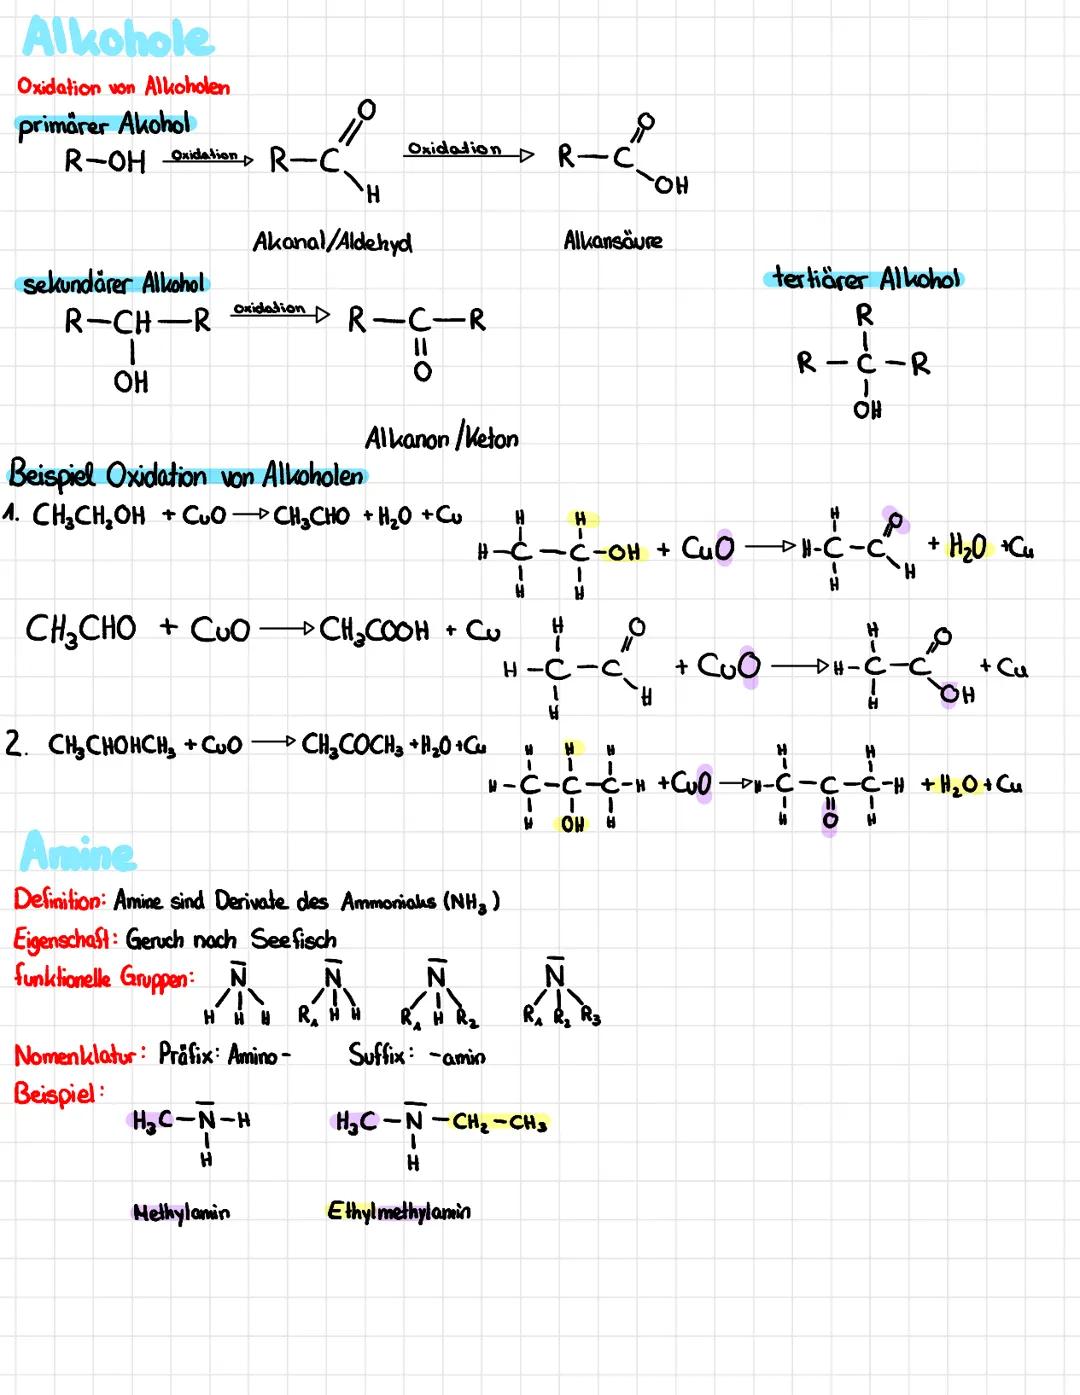 Alkohole
Oxidation von Alkoholen
primärer Akohol
R-OH Oxidation R-C O H Oxidation R-C O OH
Akanal/Aldehyd Alkansäure
sekundärer Alkohol tertiärer Alkohol
R-CH-R OH Oxidation R-C-R O
R
R-C-R
OH
Alkanon/Keton
Beispiel Oxidation von Alkoholen
1. CH₃CH₂OH + CuO → CH₃CHO + H₂O + Cu
H H
H-C-C-OH + CuO → H-C-C O H + H₂O + Cu
H H
CH₃CHO + CuO → CH₃COOH + Cu
H O
H-C-C H + CuO → H-C-C O OH + Cu
H
2. CH₃CHOHCH₃ + CuO → CH₃COCH₃ + H₂O + Cu
H H H H H
H-C-C-C-H + CuO → H-C-C-C-H + H₂O + Cu
H OH H H O H
Amine
Definition: Amine sind Derivate des Ammoniaks (NH₃)
Eigenschaft: Geruch nach Seefisch
funktionelle Gruppen: N N N N
H H H R₁ H H R₁ H R₂ R₁ R₂ R₃
Nomenklatur: Präfix: Amino- Suffix: -amin
Beispiel:
H₃C-N-H H₃C-N-CH₂-CH₃
H H
Methylamin Ethylmethylamin